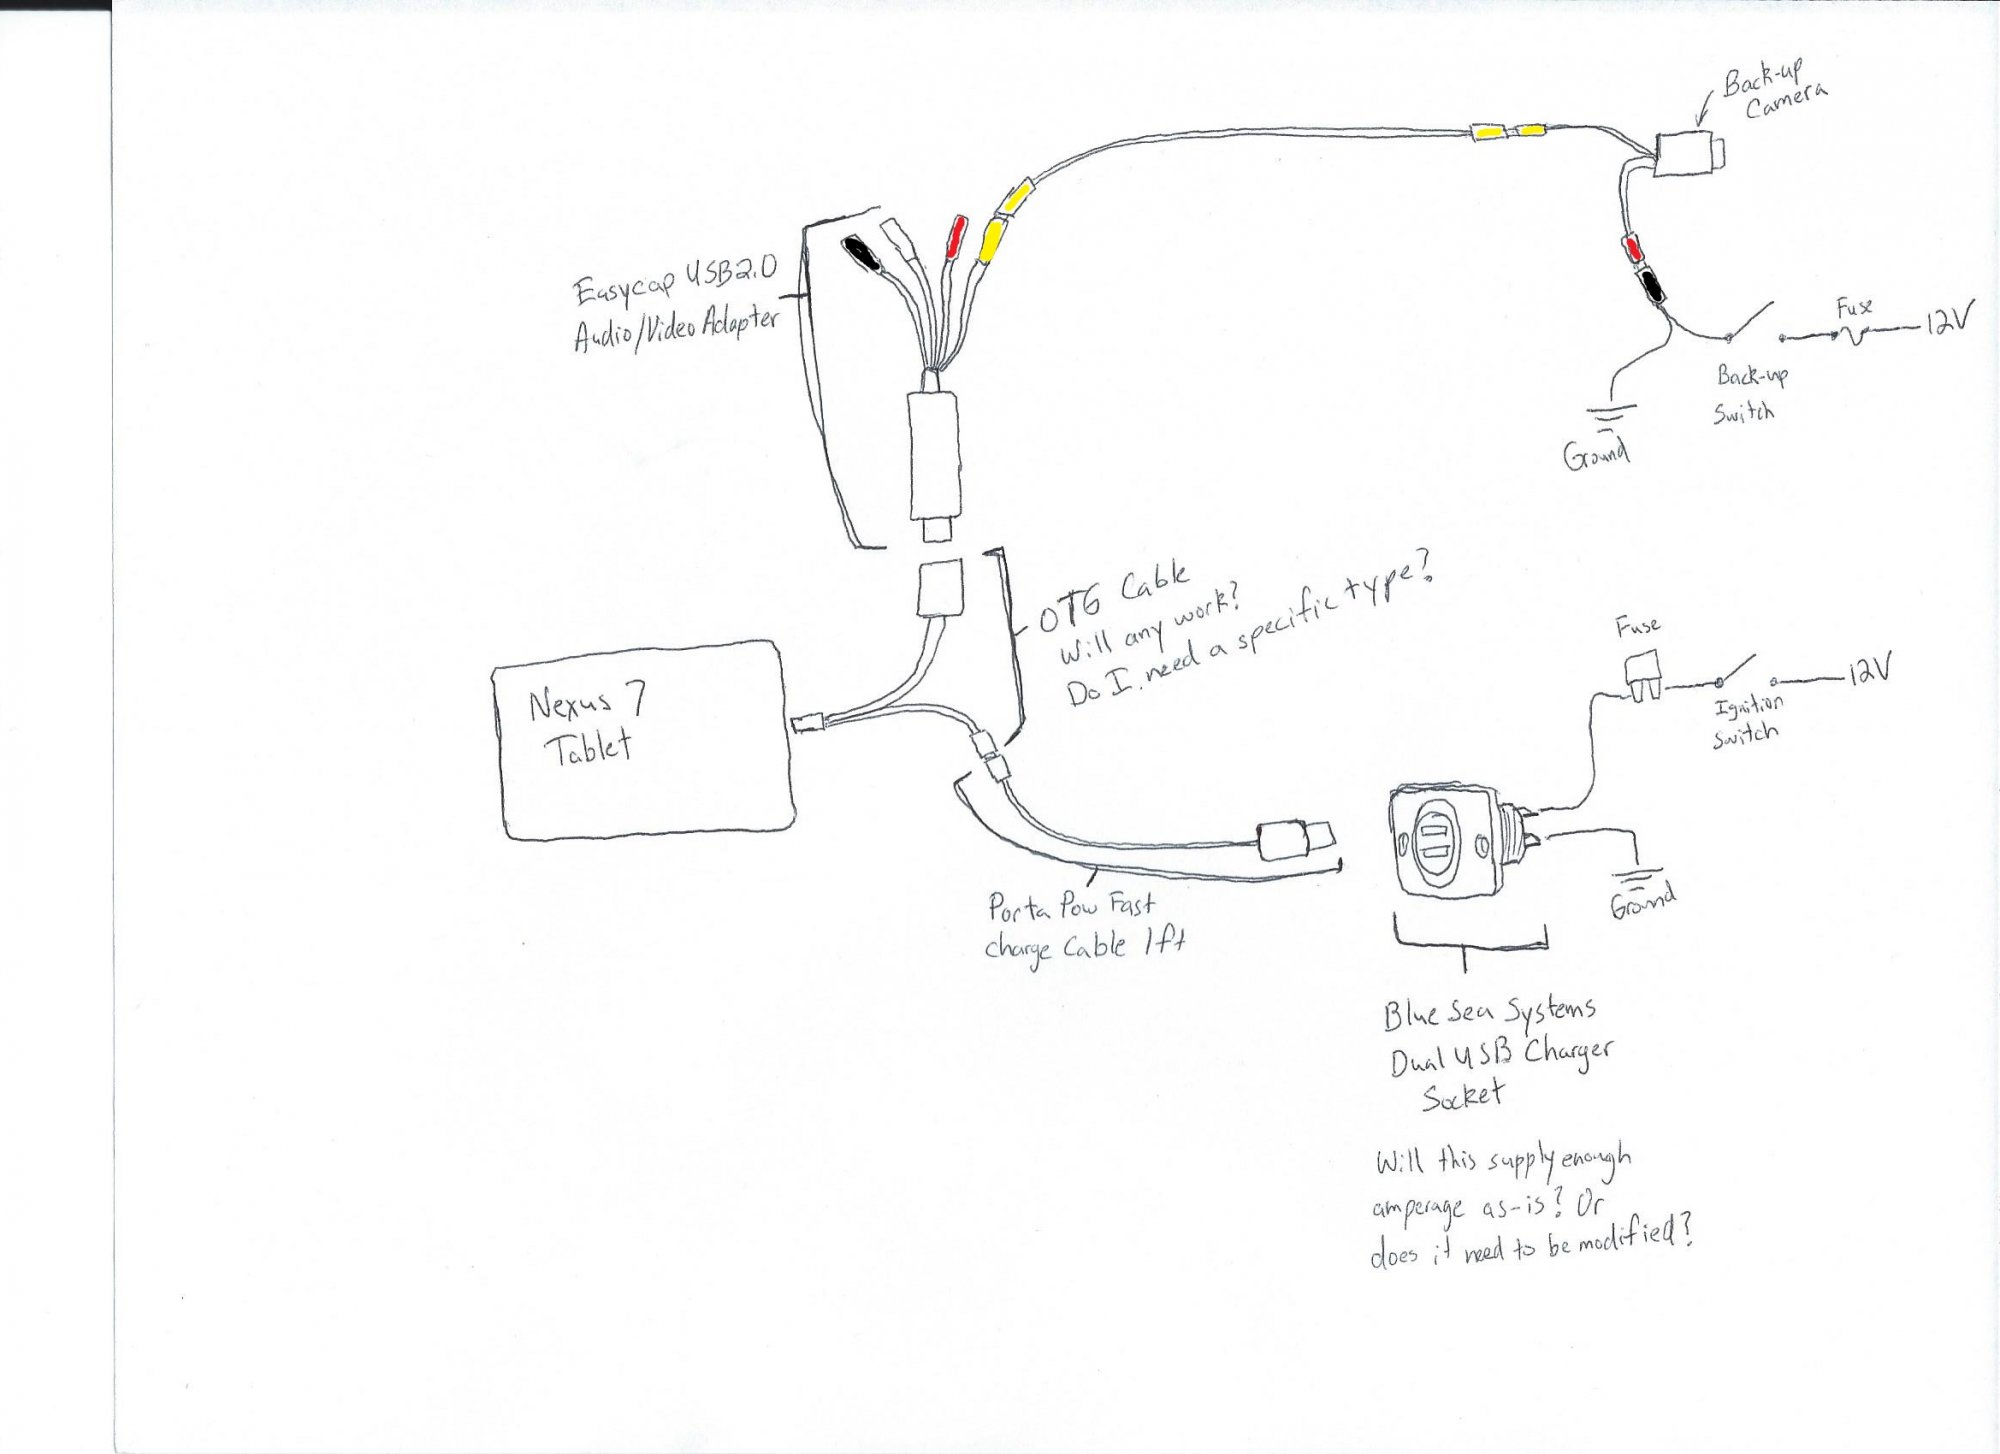 Back-up
Camera
Easycap USB2.0
Audio/Video Adapter
Fuse
12V
Back-up
Switch
Ground
OTG Cable
Will any work?
Do I need a specific type?
Nexus 7
Tablet
Fuse
12V
Ignition
Switch
Ground
Porta Pow Fast
charge Cable 1ft
Blue Sea Systems
Dual USB Charger
Socket
Will this supply enough
amperage as-is? Or
does it need to be modified?